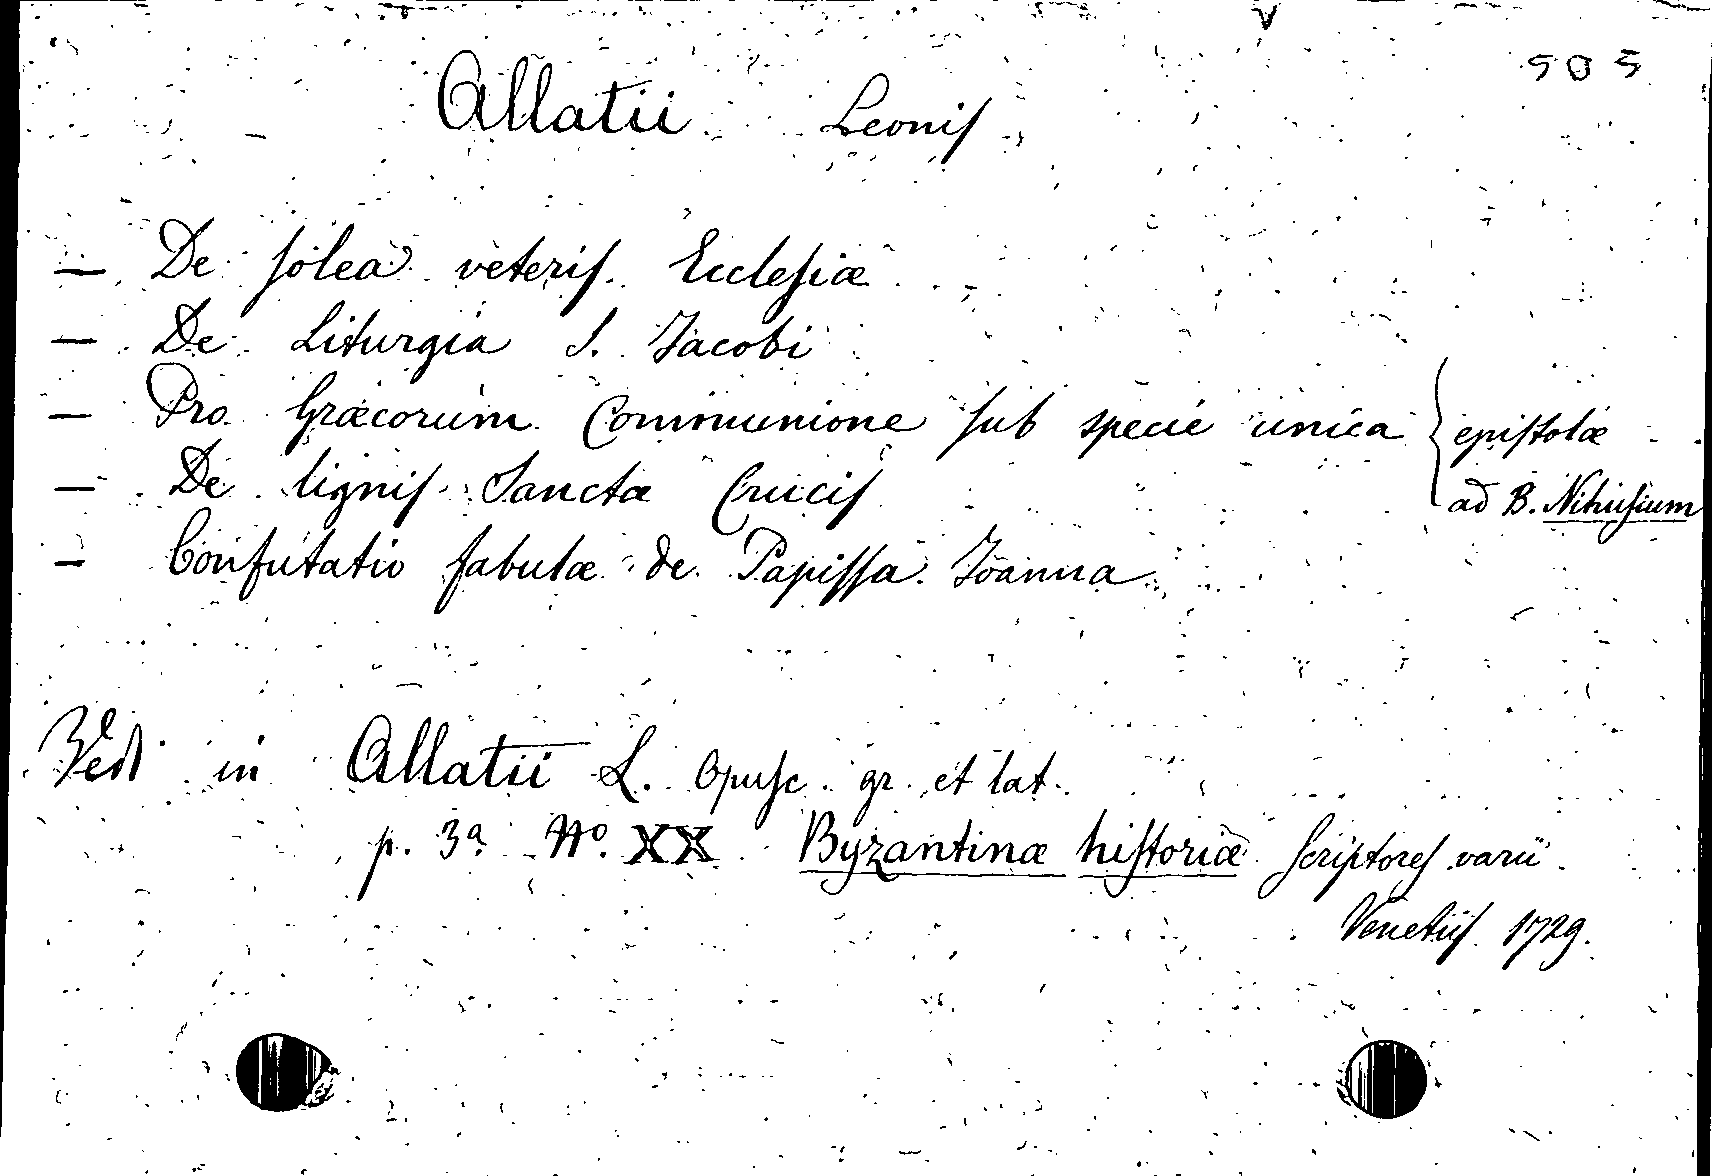 505
Allatii Leonis
— De solea veteris Ecclesiæ
— De Liturgia S. Jacobi
— Pro Græcorum Communione sub specie unica } epistolæ
— De lignis Sanctæ Crucis } ad B. Nihusium
— Confutatio fabulæ de Papissa Joanna
Vedi in Allatii L. Opusc. gr. et lat.
p. 3ª Nº. XX Byzantinæ historiæ scriptores varii.
Venetiis 1729.